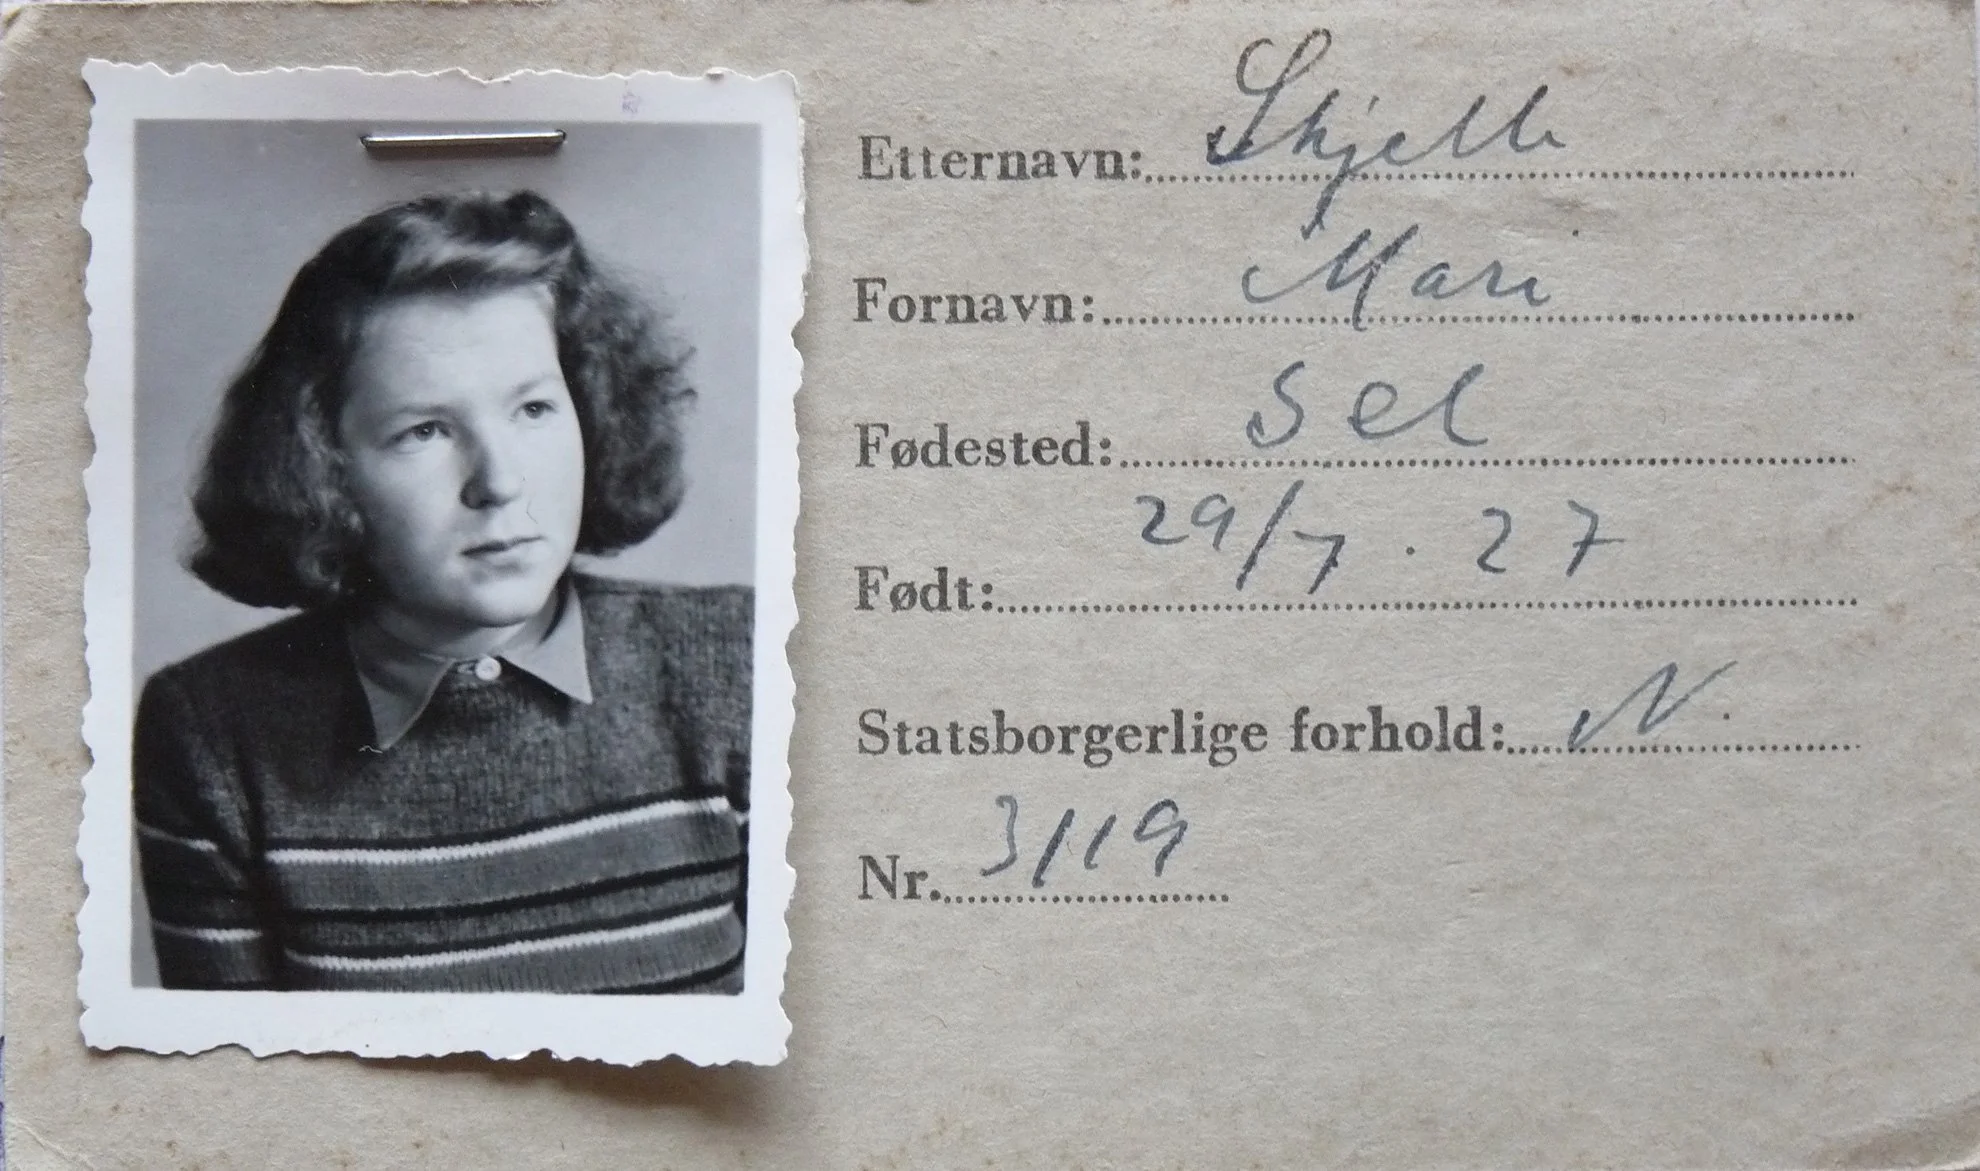 Etternavn: Skjelle
Fornavn: Mari
Fødested: Sel
Født: 29/7.27
Statsborgerlige forhold: N.
Nr. 3/119